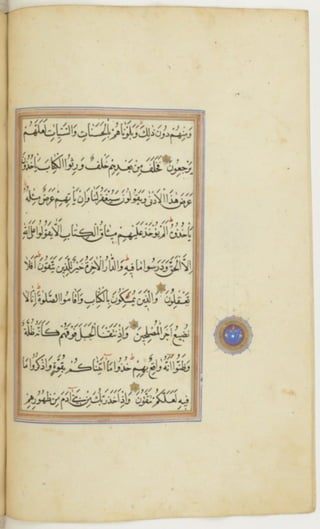 وَمِنْهُمْ دُونَ ذٰلِكَ وَبَلَوْنَاهُمْ بِالْحَسَنَاتِ وَالسَّيِّاٰتِ لَعَلَّهُمْ
يَرْجِعُونَ فَخَلَفَ مِنْ بَعْدِهِمْ خَلْفٌ وَرِثُوا الْكِتَابَ يَأْخُذُونَ
عَرَضَ هٰذَا الْاَدْنٰى وَيَقُولُونَ سَيُغْفَرُ لَنَا وَاِنْ يَأْتِهِمْ عَرَضٌ مِثْلُهُ
يَأْخُذُوهُ اَلَمْ يُؤْخَذْ عَلَيْهِمْ مِيثَاقُ الْكِتَابِ اَنْ لَا يَقُولُوا عَلَى اللّٰهِ
اِلَّا الْحَقَّ وَدَرَسُوا مَا فِيهِ وَالدَّارُ الْاٰخِرَةُ خَيْرٌ لِلَّذِينَ يَتَّقُونَ اَفَلَا
تَعْقِلُونَ وَالَّذِينَ يُمَسِّكُونَ بِالْكِتَابِ وَاَقَامُوا الصَّلٰوةَ اِنَّا لَا
نُضِيعُ اَجْرَ الْمُصْلِحِينَ وَاِذْ نَتَقْنَا الْجَبَلَ فَوْقَهُمْ كَاَنَّهُ ظُلَّةٌ
وَظَنُّوا اَنَّهُ وَاقِعٌ بِهِمْ خُذُوا مَا اٰتَيْنَاكُمْ بِقُوَّةٍ وَاذْكُرُوا مَا
فِيهِ لَعَلَّكُمْ تَتَّقُونَ وَاِذْ اَخَذَ رَبُّكَ مِنْ بَنِى اٰدَمَ مِنْ ظُهُورِهِمْ